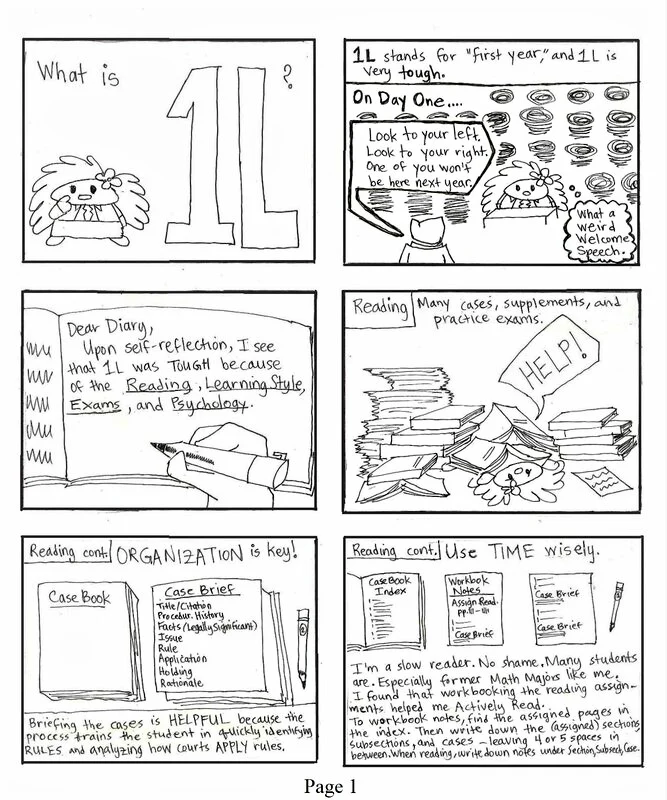 What is
1L
?
1L stands for "first year," and 1L is
very tough.
On Day One....
Look to your left.
Look to your right.
One of you won't
be here next year.
What a
weird
Welcome
Speech.
Dear Diary,
Upon self-reflection, I see
that 1L was TOUGH because
of the Reading, Learning Style,
Exams, and Psychology.
Reading
Many cases, supplements, and
practice exams.
HELP!
Reading cont.
ORGANIZATION is key!
Case Book
Case Brief
Title/Citation
Procedur. History
Facts (Legally Significant)
Issue
Rule
Application
Holding
Rationale
Briefing the cases is HELPFUL because the
process trains the student in quickly identifying
RULES and analyzing how courts APPLY rules.
Reading cont.
Use TIME wisely.
CaseBook
Index
Workbook
Notes
Assign Read.
Case Brief
Case Brief
Case Brief
I'm a slow reader. No shame. Many students
are. Especially former Math Majors like me.
I found that workbooking the reading assign-
ments helped me Actively Read.
To workbook notes, find the assigned pages in
the index. Then write down the (assigned) sections,
subsections, and cases - leaving 4 or 5 spaces in
between. When reading, write down notes under Section, Subsect, Case.
Page 1